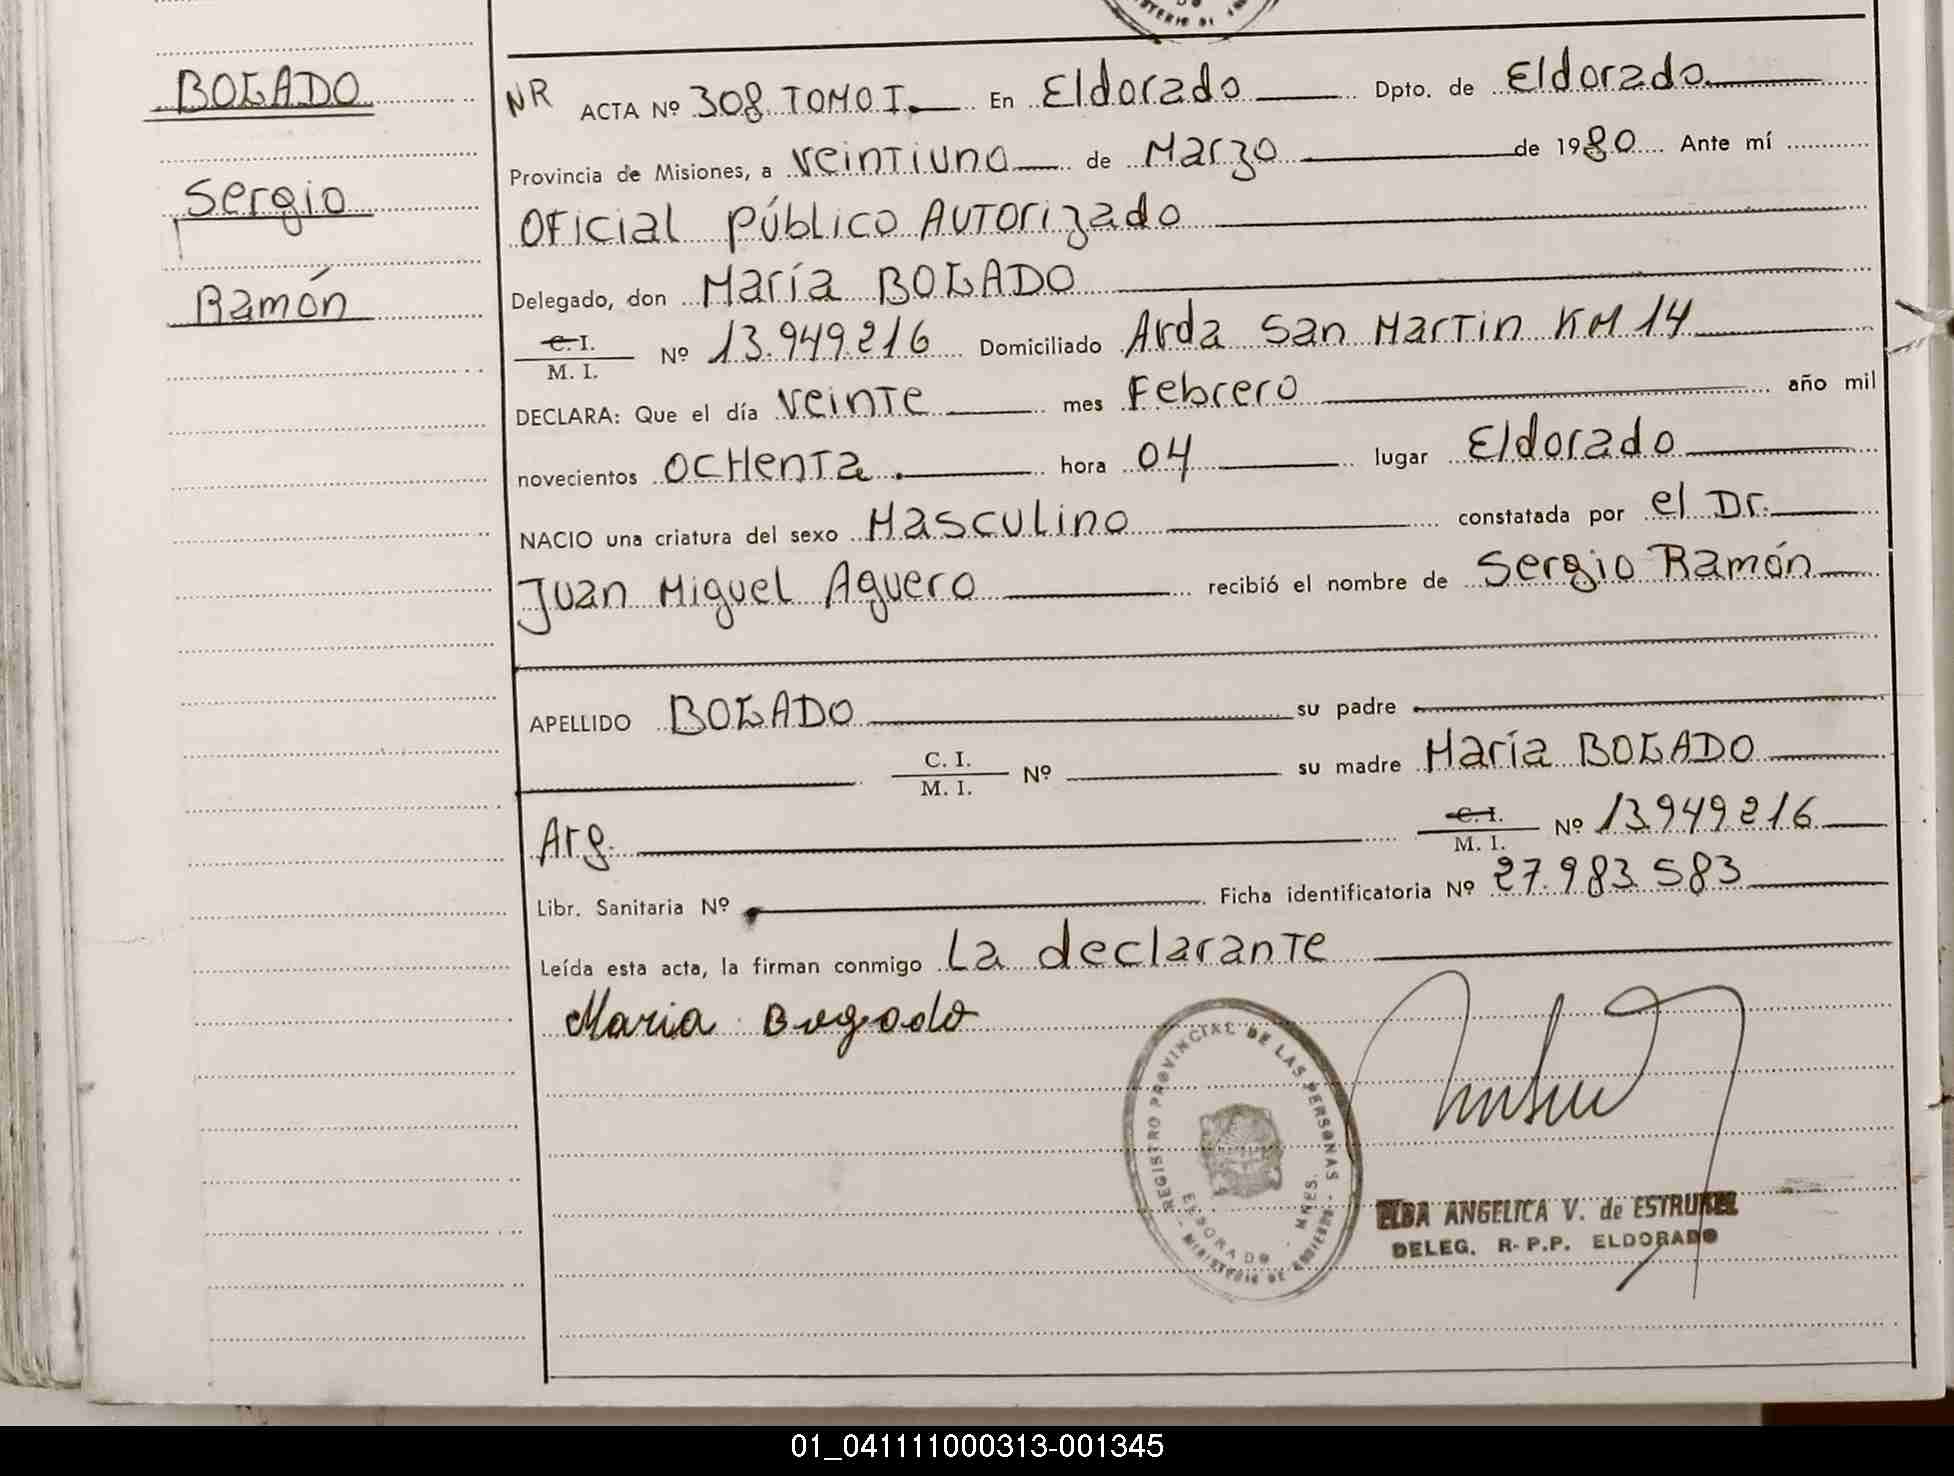 BOGADO
Sergio
Ramón
NR ACTA Nº 308 TOMO I. En Eldorado Dpto. de Eldorado
Provincia de Misiones, a veintiuno de Marzo de 1980 Ante mí
Oficial Público Autorizado
Delegado, don María BOGADO
C. I. / M. I. Nº 13.949.216 Domiciliado Avda San Martin KM 14
DECLARA: Que el día veinte mes Febrero año mil
novecientos ochenta. hora 04 lugar Eldorado
NACIO una criatura del sexo Masculino constatada por el Dr.
Juan Miguel Aguero recibió el nombre de Sergio Ramón
APELLIDO BOGADO su padre
C. I. / M. I. Nº su madre María BOGADO
Arg. C. I. / M. I. Nº 13.949.216
Libr. Sanitaria Nº Ficha identificatoria Nº 27.983.583
Leída esta acta, la firman conmigo La declarante
Maria Bogado
REGISTRO PROVINCIAL DE LAS PERSONAS
ELDORADO - MNES.
MINISTERIO DE GOBIERNO
ELDA ANGELICA V. de ESTRUBEL
DELEG. R.P.P. ELDORADO
01_041111000313-001345